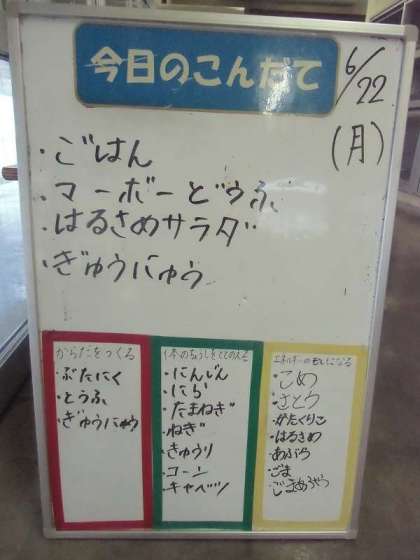 今日のこんだて
6/22
(月)
・ごはん
・マーボーどうふ
・はるさめサラダ
・ぎゅうにゅう
からだをつくる
・ぶたにく
・とうふ
・ぎゅうにゅう
体のちょうしをととのえる
・にんじん
・にら
・たまねぎ
・ねぎ
・きゅうり
・コーン
・キャベツ
エネルギーのもとになる
・こめ
・さとう
・かたくりこ
・はるさめ
・あぶら
・ごま
・ごまあぶら